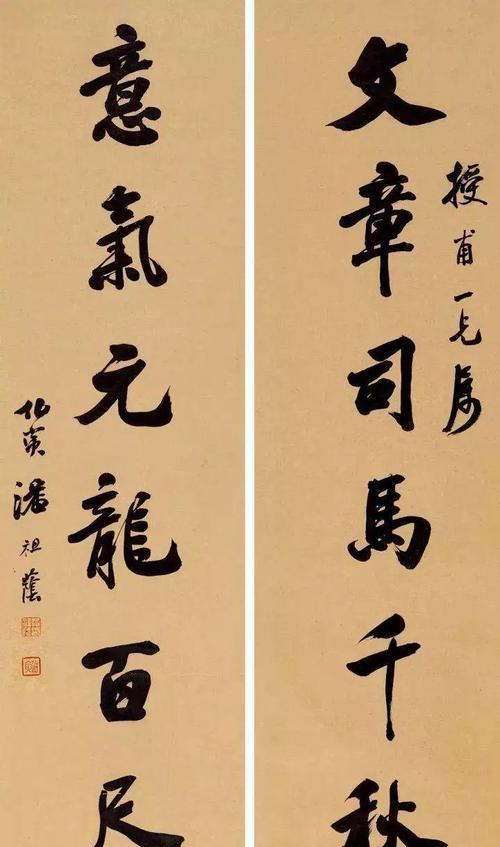 授甫一兄属
文章司馬千秋
意氣元龍百尺
伯寅潘祖蔭